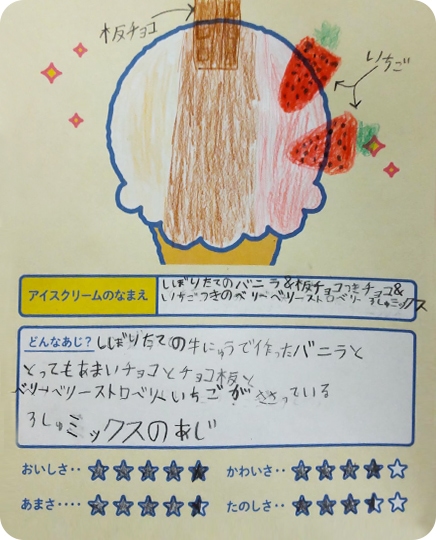 板チョコ
いちご
アイスクリームのなまえ
しぼりたてのバニラ&板チョコつきチョコ&
いちごつきのベリーベリーストロベリー 3しゅミックス
どんなあじ? しぼりたての牛にゅうで作ったバニラと
とってもあまいチョコとチョコ板と
ベリーベリーストロベリーいちごがささっている
3しゅミックスのあじ
おいしさ‥ ★★★★★
かわいさ‥ ★★★★☆
あまさ‥‥
たのしさ‥